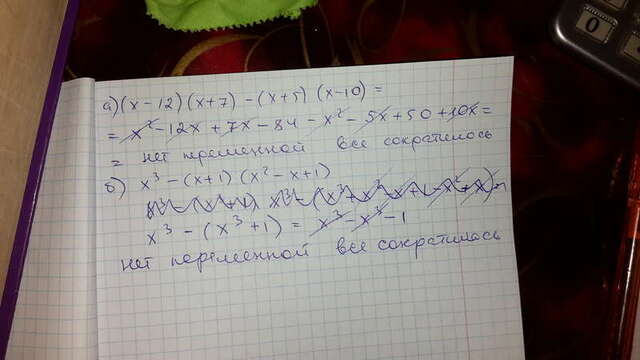 а) (x-12)(x+7) - (x+5)(x-10) =
= x² - 12x + 7x - 84 - x² - 5x + 50 + 10x =
= нет переменной все сократилось
б) x³ - (x+1)(x² - x + 1)
x³ - (x³ + 1) = x³ - x³ - 1
нет переменной все сократилась
0